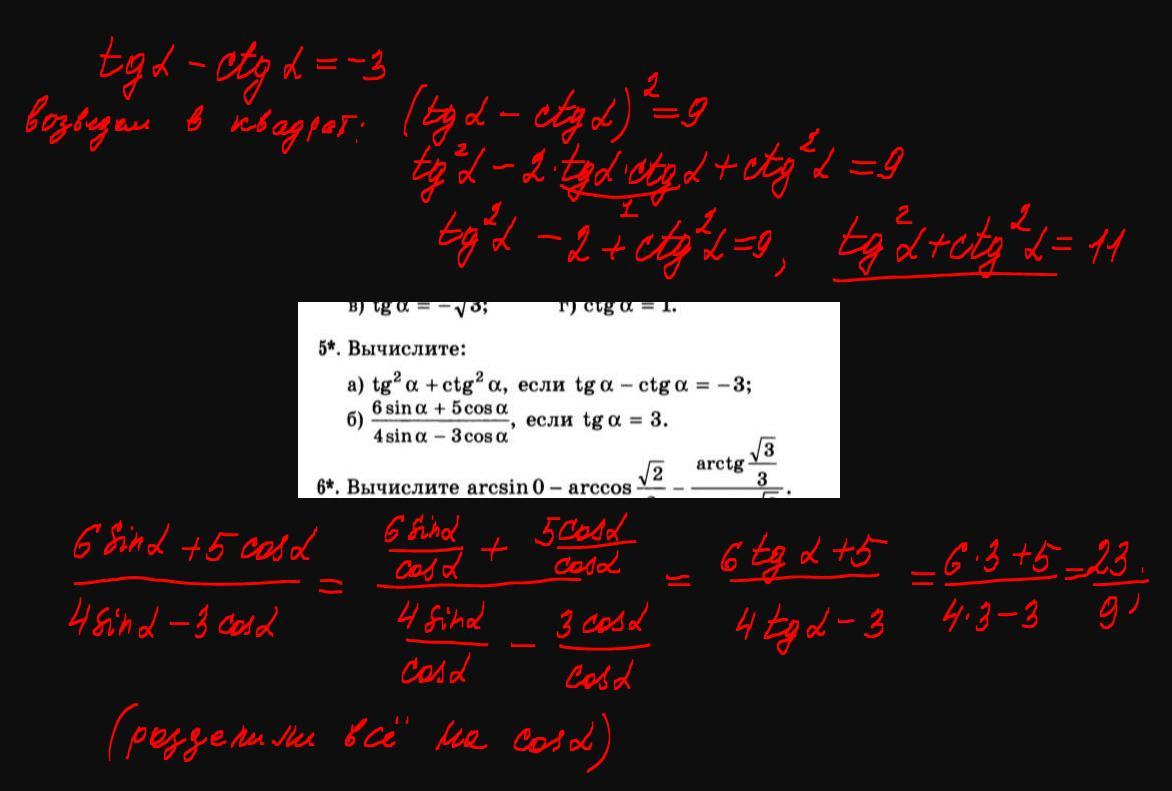 tgα - ctgα = -3
возведем в квадрат: (tgα - ctgα)² = 9
tg²α - 2·tgα·ctgα + ctg²α = 9
1
tg²α - 2 + ctg²α = 9, tg²α + ctg²α = 11
в) tg α = -√3; г) ctg α = 1.
5*. Вычислите:
а) tg² α + ctg² α, если tg α - ctg α = -3;
б) (6 sin α + 5 cos α)/(4 sin α - 3 cos α), если tg α = 3.
6*. Вычислите arcsin 0 - arccos √2 - arctg √3/3 .
(6 sinα + 5 cosα)/(4 sinα - 3 cosα) = (6 sinα/cosα + 5 cosα/cosα)/(4 sinα/cosα - 3 cosα/cosα) = (6 tgα + 5)/(4 tgα - 3) = (6·3+5)/(4·3-3) = 23/9;
(разделили всё на cosα)